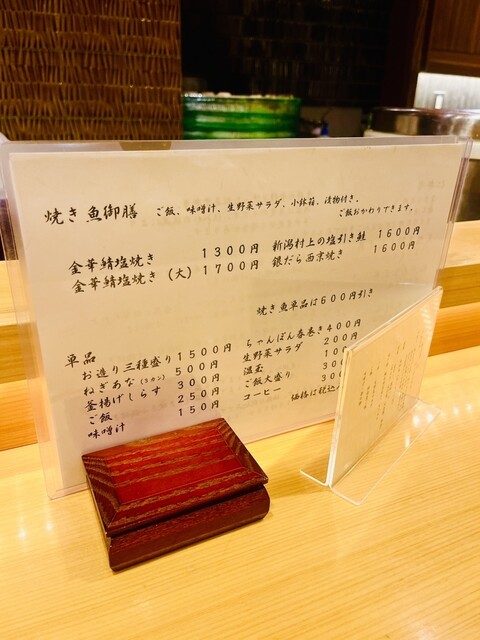 焼き魚御膳 ご飯、味噌汁、生野菜サラダ、小鉢荀、漬物付き、
ご飯おかわりできます。
金華鯖塩焼き 1300円
金華鯖塩焼き (大) 1700円
新潟村上の塩引き鮭 1600円
銀だら西京焼き 1600円
焼き魚単品は600円引き
単品
お造り三種盛り 1500円
ねぎあな(5カン) 500円
釜揚げしらす 300円
ご飯 250円
味噌汁 150円
ちゃんぽん春巻き 400円
生野菜サラダ 200円
温玉
ご飯大盛り
コーヒー
価格は税込